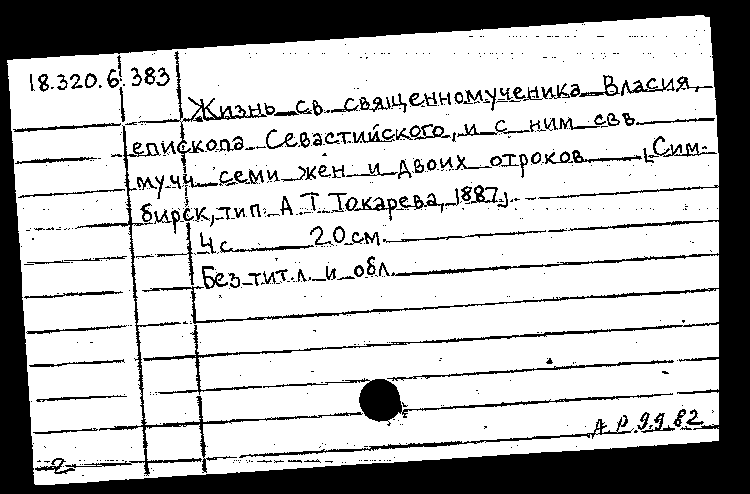 18.320.6.383
Жизнь св. священномученика Власия,
епископа Севастийского, и с ним свв.
муч. семи жен и двоих отроков. [Сим-
бирск, тип. А.Т. Токарева, 1887].
4 с. 20 см.
Без тит. л. и обл.
А.Р. 9.9.82
2